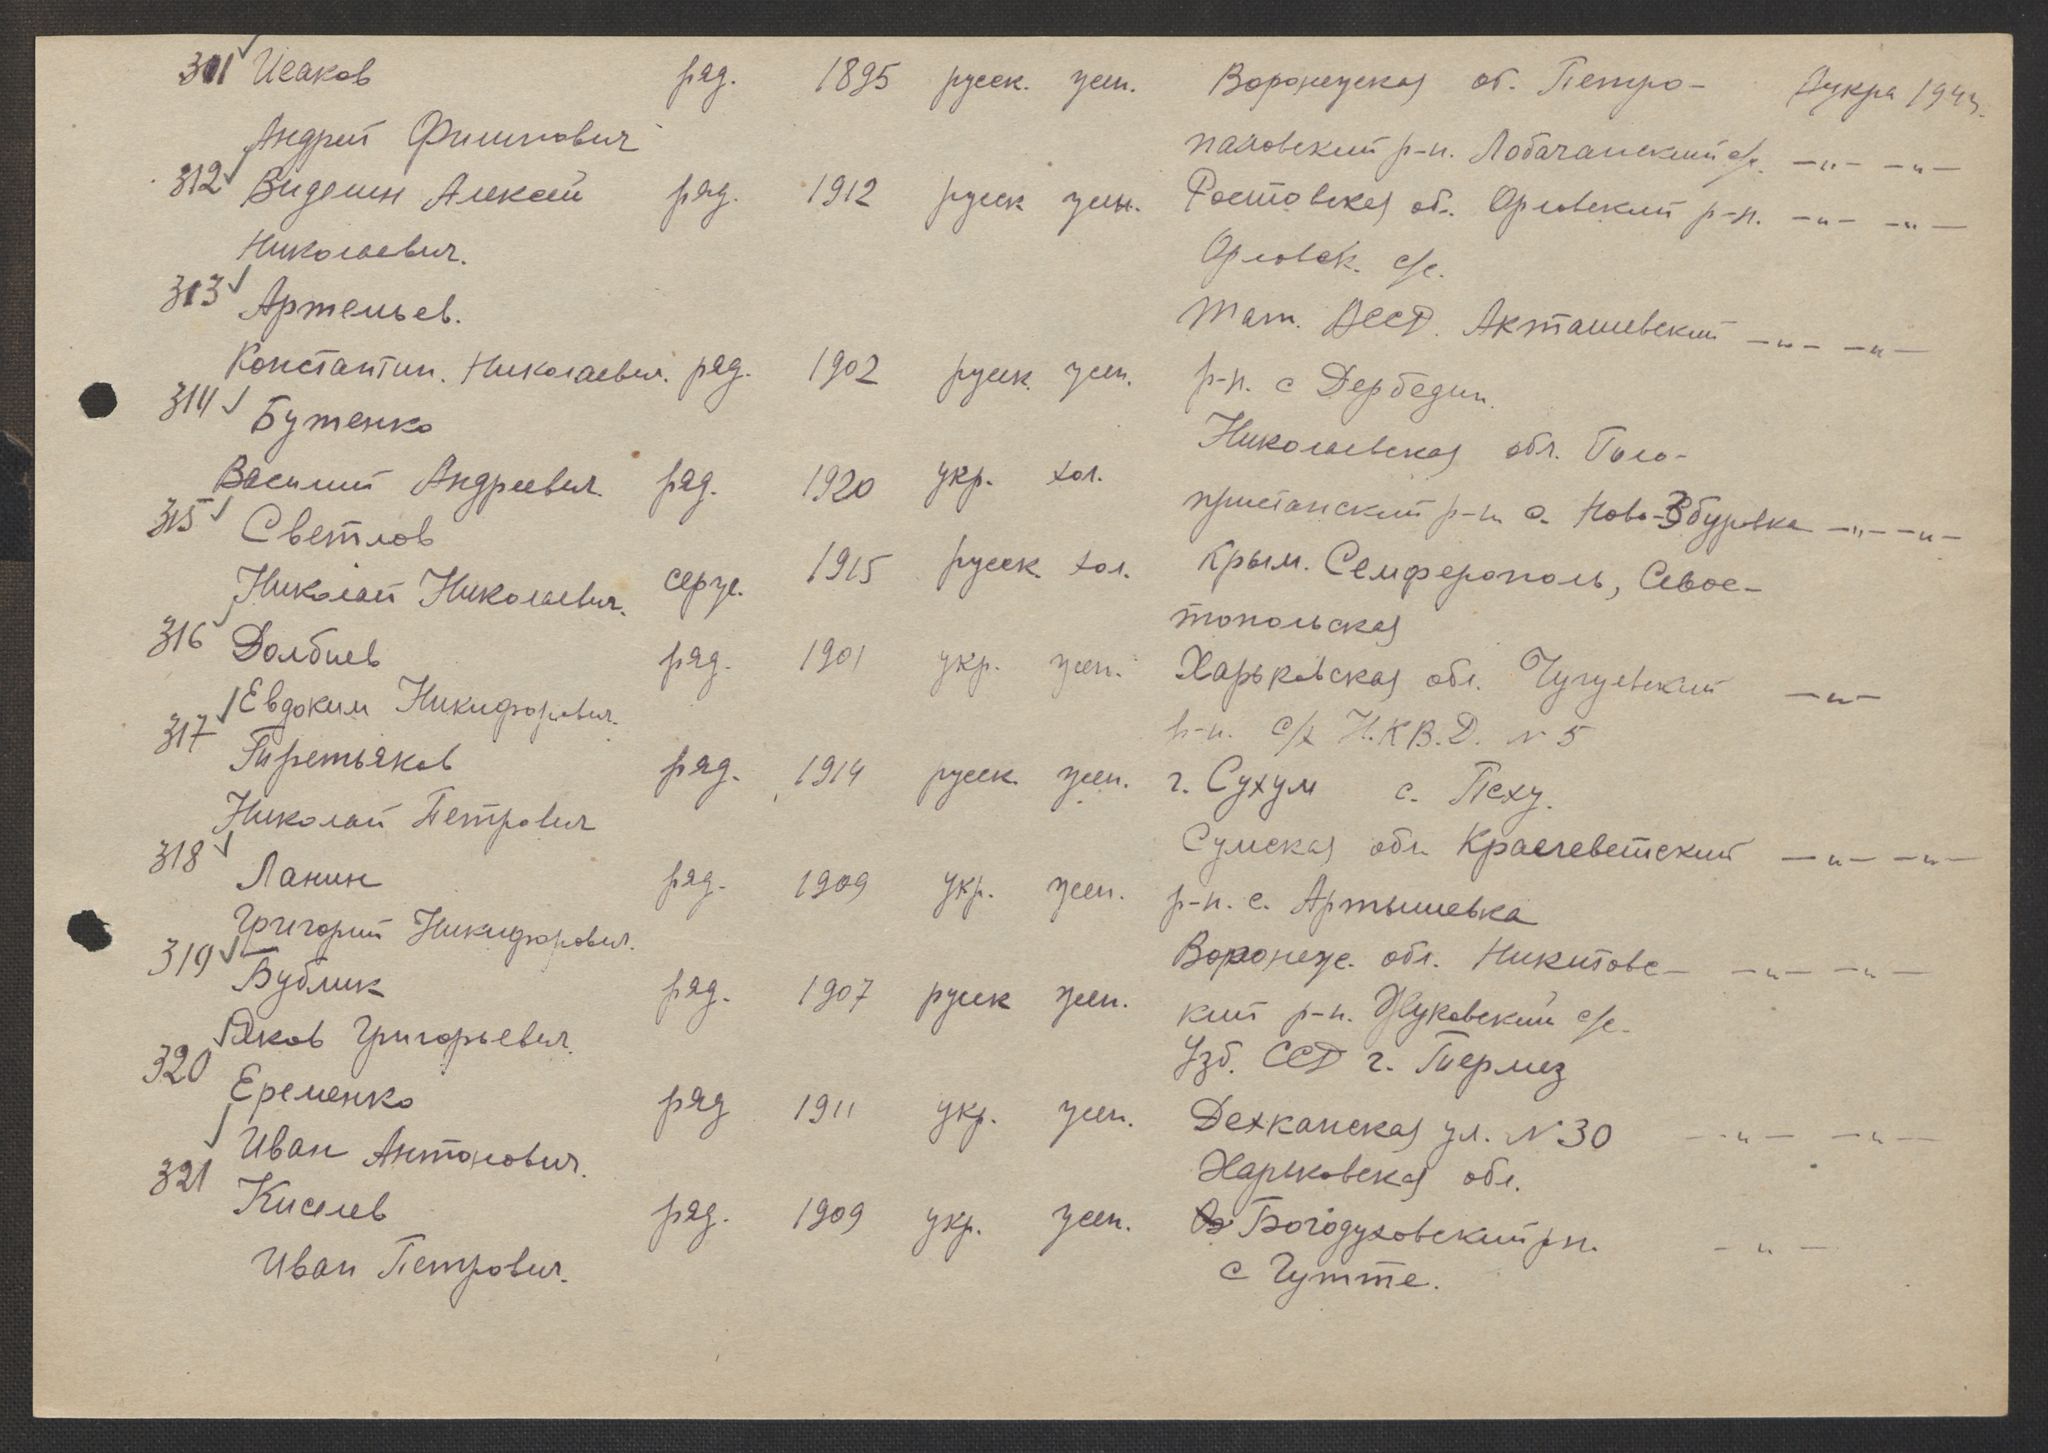 311 Исаков ряд. 1895 русск. жен. Воронежская об. Петро- Дукра 1944.
Андрей Филипович павовский р-н. Лобачанский с/с. —"— —"—
312 Видяшин Алексей ряд. 1912 русск жен. Ростовская об. Орловский р-н. —"— —"—
Николаевич. Орловск. с/с.
313 Артемьев. Тат. АССР. Акташевский —"— —"—
Константин. Николаевич. ряд. 1902 русск. жен. р-н. с Дербедин.
314 Бутенко Николаевская обл. Голо-
Василий Андреевич. ряд. 1920 укр. хол. пристанский р-н с. Ново-Збурвка —"— —"—
315 Светлов серж. 1915 русск. хол. Крым. Семферополь, Севос-
Николай Николаевич. топольская
316 Долбиев ряд. 1901 укр. жен. Харьковская обл. Чугуевский —"—
Евдоким Никифорович. р-н. с/х Н.К.В.Д. N 5
317 Третьяков ряд. 1914 русск. жен. г. Сухум с. Псху.
Николай Петрович Сумская обл. Красневетский —"— —"—
318 Ланин ряд. 1909 укр. жен. р-н. с. Артышевка
Григорий Никифорович. Воронеж. обл. Никитовс- —"— —"—
319 Бублик ряд. 1907 русск жен. кий р-н. Жуковский с/с.
Яков Григорьевич. Узб. ССР г. Термез
320 Еременко ряд 1911 укр. жен. Дехканская ул. N 30 —"— —"—
Иван Антонович. Харьковская обл.
321 Киселев ряд. 1909 укр. жен. Богодуховский р-н. —"—
Иван Петрович. с Гутте.